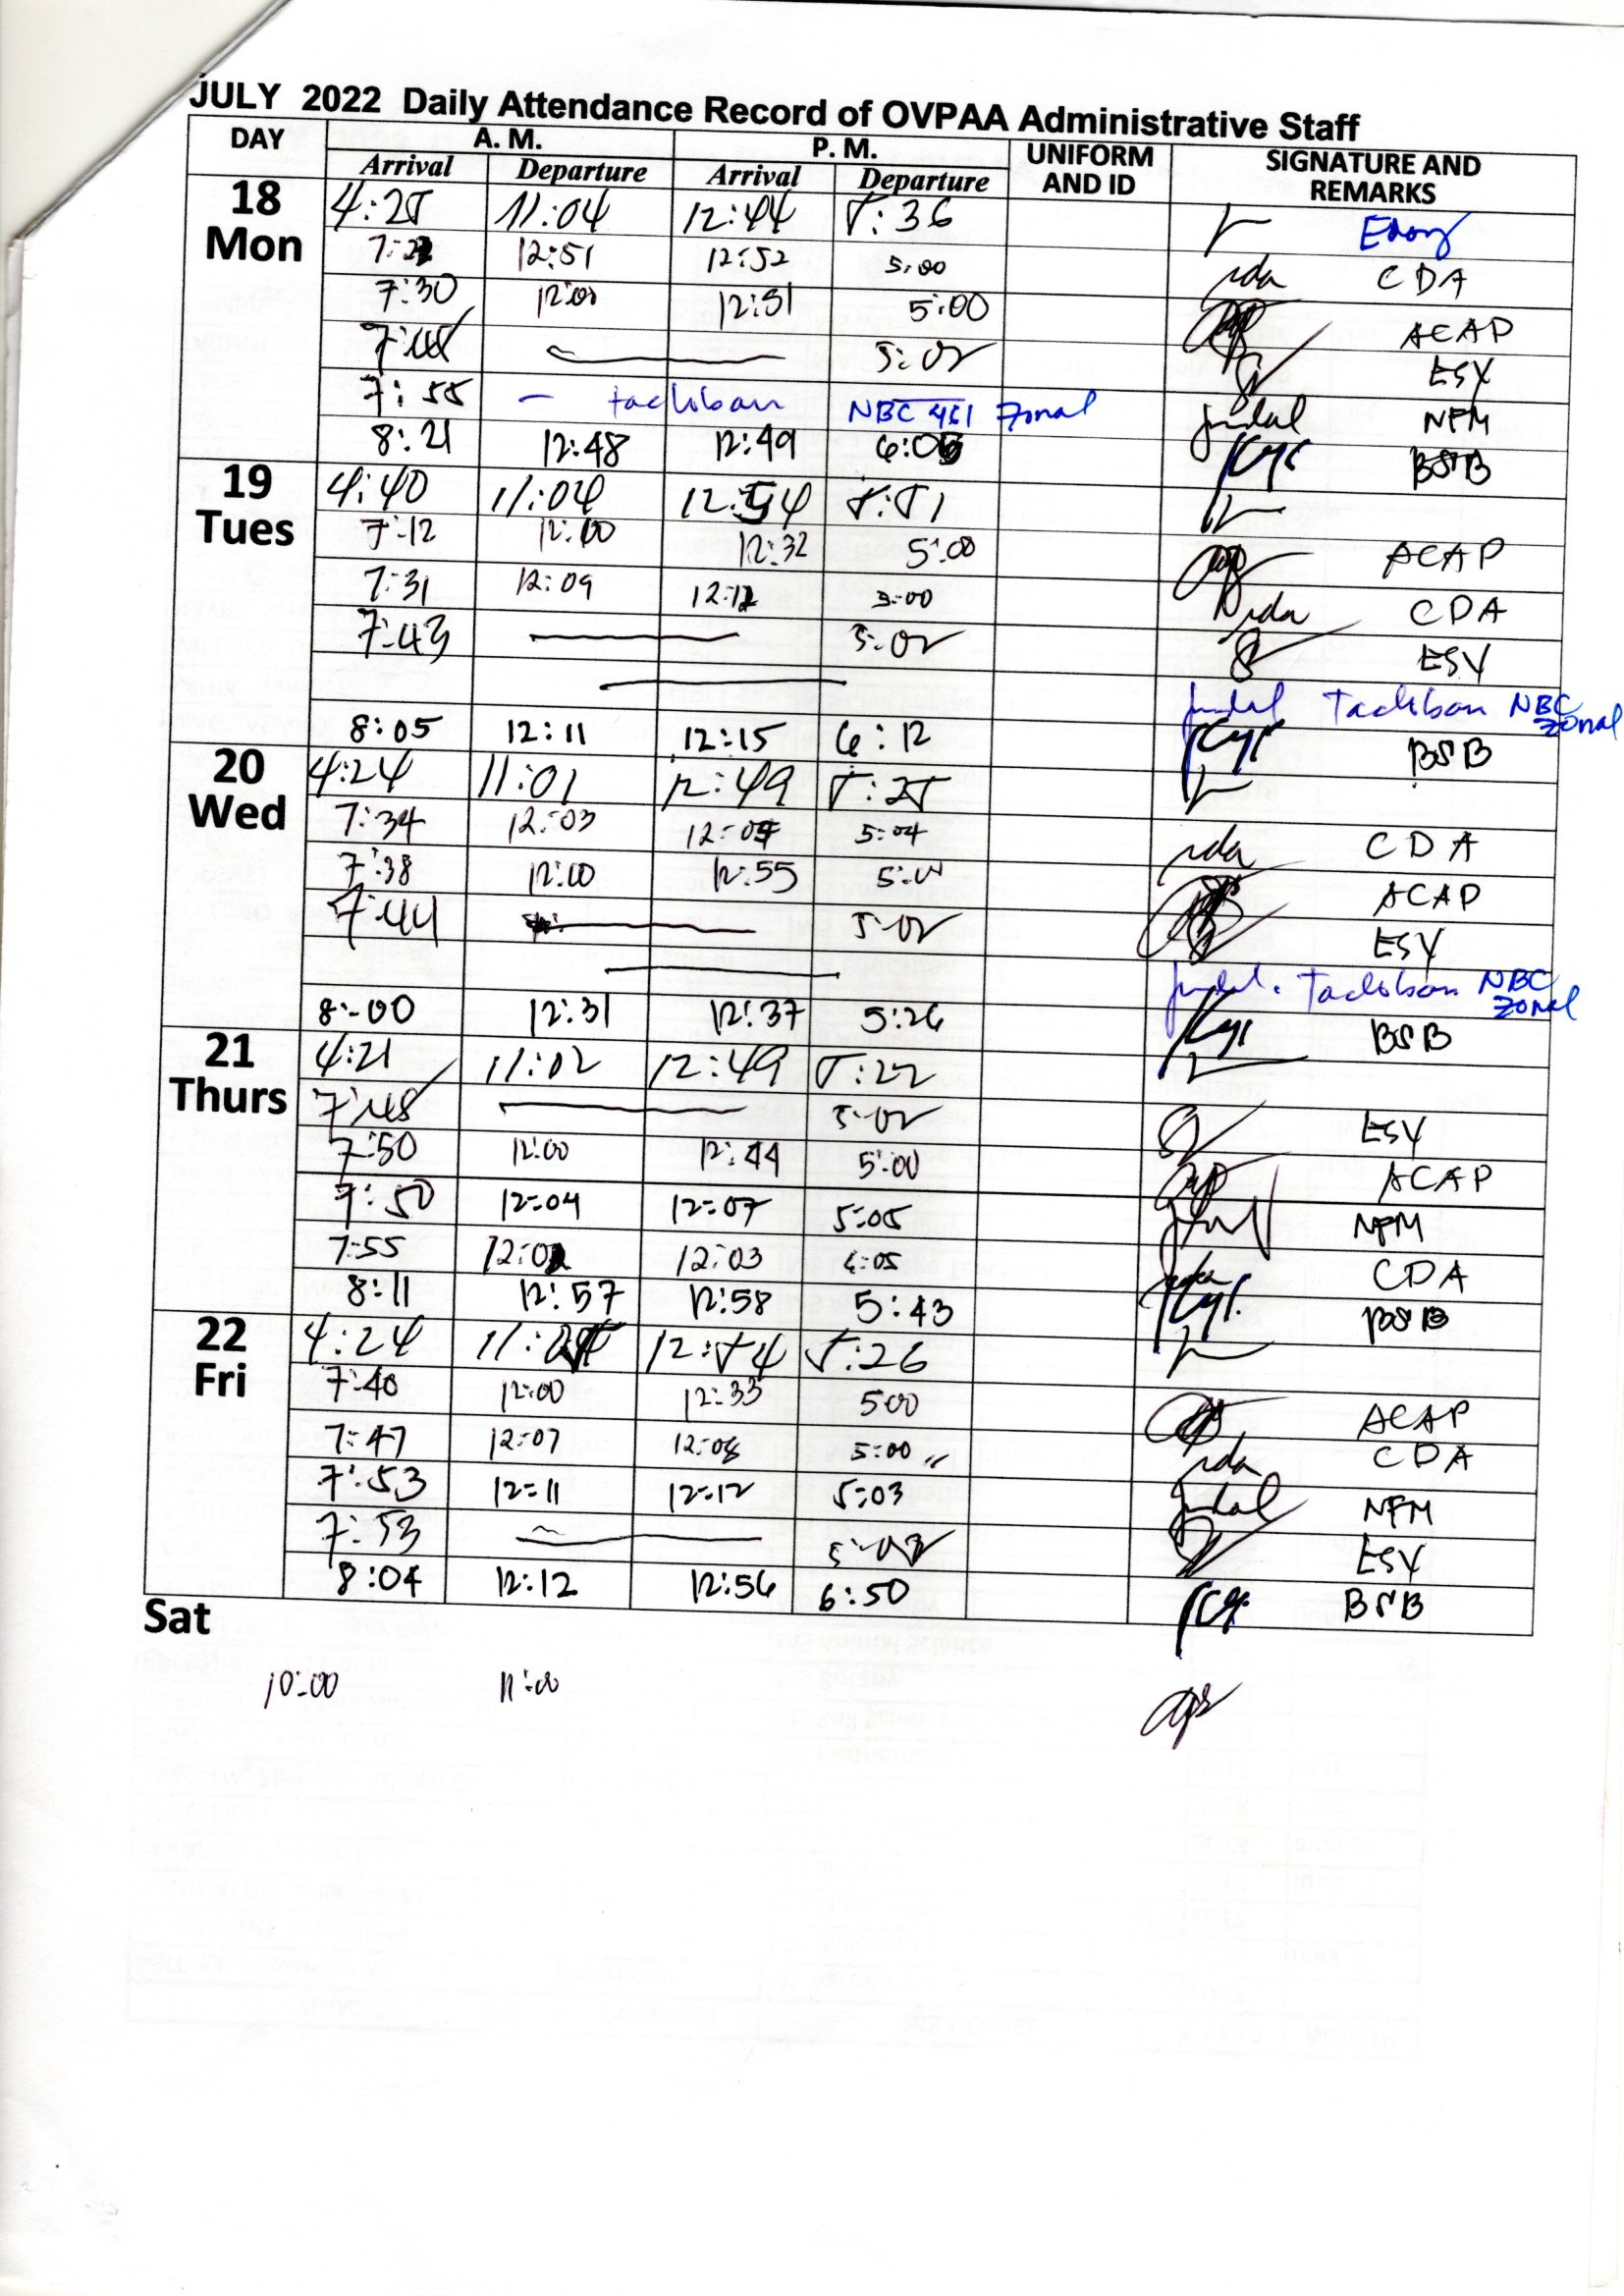 JULY 2022 Daily Attendance Record of OVPAA Administrative Staff
DAY A. M. P. M. UNIFORM AND ID SIGNATURE AND REMARKS
Arrival Departure Arrival Departure
18 Mon
4:25 11:04 12:44 5:36 Edong
12:51 12:52 5:00 CDA
7:30 12:00 12:31 5:00 ACAP
7:48 5:02 ESY
7:55 – tacloban NBC 461 Zonal NFM
8:21 12:48 12:49 6:05 BSB
19 Tues
4:40 11:04 12:54 5:51
7:12 12:00 12:32 5:00 ACAP
7:31 12:09 12:12 5:00 CDA
7:43 5:02 ESY
Tacloban NBC Zonal
8:05 12:11 12:15 6:12 BSB
20 Wed
4:24 11:01 12:49 5:25
7:34 12:03 12:05 5:04 CDA
7:38 12:00 12:55 5:00 ACAP
7:44 5:02 ESY
Tacloban NBC Zonal
8:00 12:31 12:37 5:26 BSB
21 Thurs
4:21 11:02 12:49 5:22
7:48 5:02 ESY
7:50 12:00 12:44 5:00 ACAP
7:50 12:04 12:07 5:05 NFM
7:55 12:02 12:03 6:05 CDA
8:11 12:57 12:58 5:43 BSB
22 Fri
4:24 12:54 5:26
7:40 12:00 12:33 5:00 ACAP
7:47 12:07 12:08 5:00 CDA
7:53 12:11 12:12 5:03 NFM
7:53 5:02 ESY
8:04 12:12 12:56 6:50 BSB
Sat
10:00 11:00